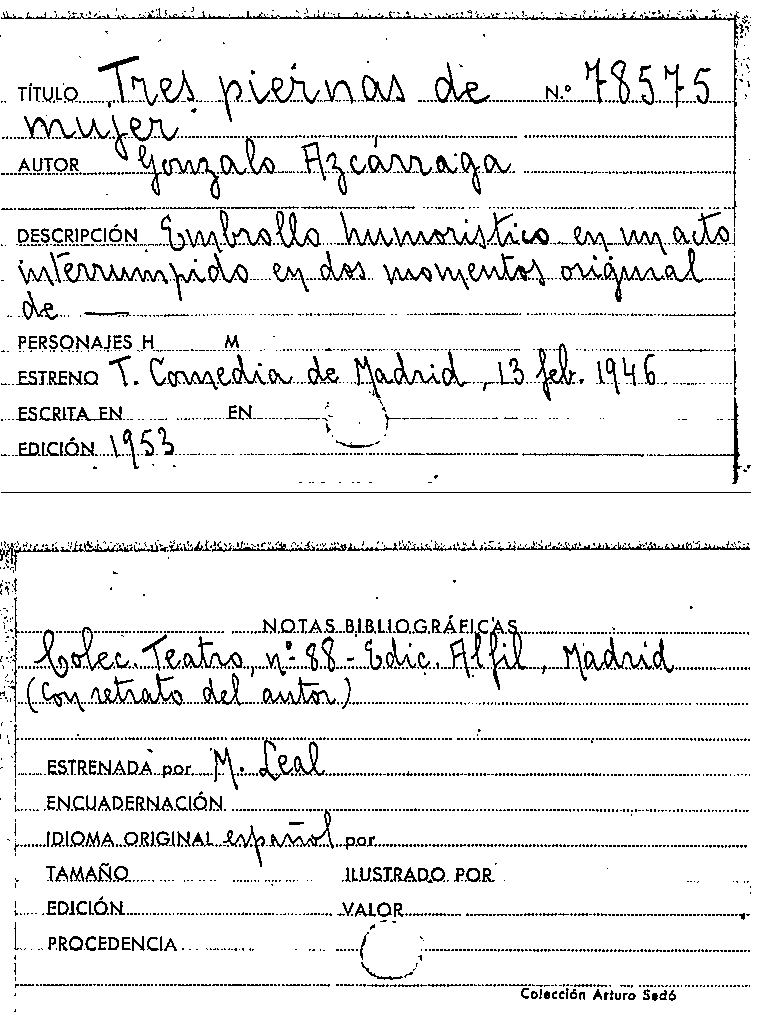 TÍTULO Tres piernas de N.º 78575
mujer
AUTOR Gonzalo Azcárraga
DESCRIPCIÓN Embrollo humoristico en un acto
interrumpido en dos momentos original
de —
PERSONAJES H M
ESTRENO T. Comedia de Madrid, 13 feb. 1946
ESCRITA EN EN
EDICIÓN 1953
NOTAS BIBLIOGRÁFICAS
Colec. Teatro, nº 88 - Edic. Alfil, Madrid
(Con retrato del autor)
ESTRENADA por M. Leal
ENCUADERNACIÓN
IDIOMA ORIGINAL español por
TAMAÑO ILUSTRADO POR
EDICIÓN VALOR
PROCEDENCIA
Colección Arturo Sedó